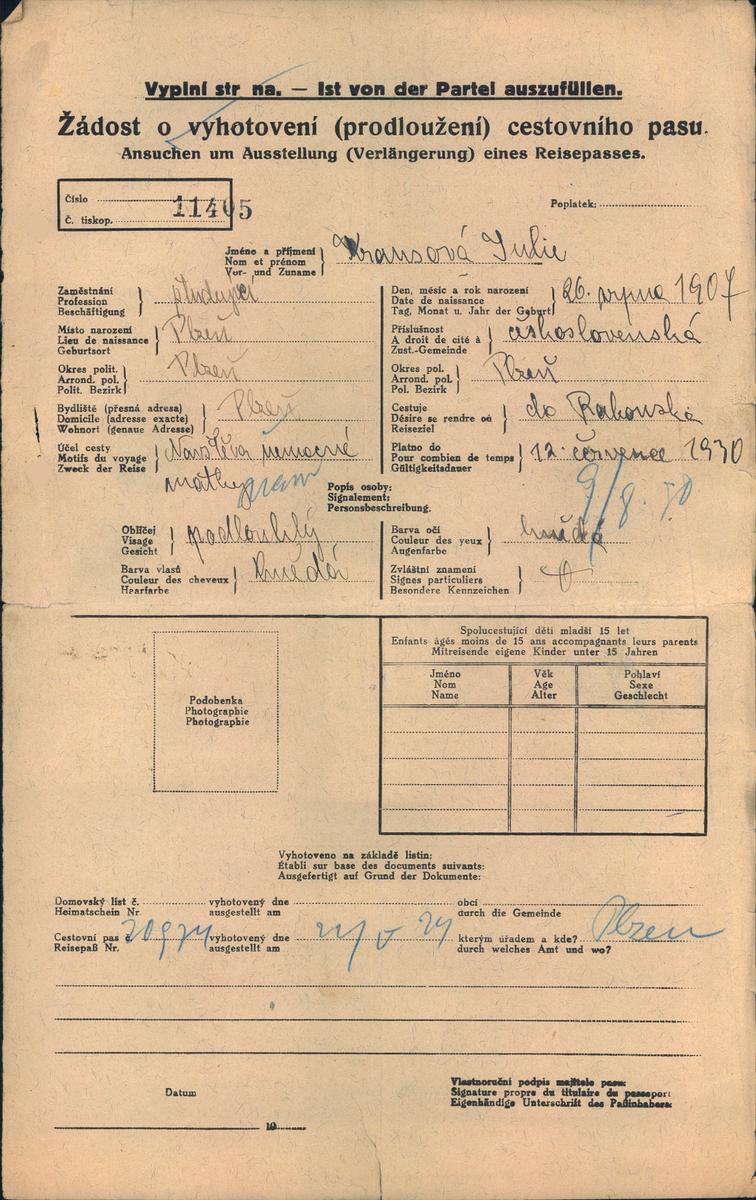 Vyplní str na. — Ist von der Partei auszufüllen.
Žádost o vyhotovení (prodloužení) cestovního pasu.
Ansuchen um Ausstellung (Verlängerung) eines Reisepasses.
Číslo
11405
Č. tiskop.
Poplatek:
Jméno a příjmení
Nom et prénom
Vor- und Zuname
Krausová Julie
Zaměstnání
Profession
Beschäftigung
studující
Den, měsíc a rok narození
Date de naissance
Tag, Monat u. Jahr der Geburt
26. srpna 1907
Místo narození
Lieu de naissance
Geburtsort
Plzeň
Příslušnost
A droit de cité à
Zust.-Gemeinde
československá
Okres polit.
Arrond. pol.
Polit. Bezirk
Plzeň
Okres pol.
Arrond. pol.
Pol. Bezirk
Plzeň
Bydliště (přesná adresa)
Domicile (adresse exacte)
Wohnort (genaue Adresse)
Plzeň
Cestuje
Désire se rendre où
Reiseziel
do Rakouska
Účel cesty
Motifs du voyage
Zweck der Reise
Návštěva nemocné
matky
Platno do
Pour combien de temps
Gültigkeitsdauer
12. července 1930
9/8. 30
Popis osoby:
Signalement:
Personsbeschreibung.
Obličej
Visage
Gesicht
podlouhlý
Barva očí
Couleur des yeux
Augenfarbe
hnědá
Barva vlasů
Couleur des cheveux
Haarfarbe
hnědá
Zvláštní znamení
Signes particuliers
Besondere Kennzeichen
Podobenka
Photographie
Photographie
Spolucestující děti mladší 15 let
Enfants âgés moins de 15 ans accompagnants leurs parents
Mitreisende eigene Kinder unter 15 Jahren
Jméno Věk Pohlaví
Nom Age Sexe
Name Alter Geschlecht
Vyhotoveno na základě listin:
Établi sur base des documents suivants:
Ausgefertigt auf Grund der Dokumente:
Domovský list č. vyhotovený dne obcí
Heimatschein Nr. ausgestellt am durch die Gemeinde
Cestovní pas vyhotovený dne kterým úřadem a kde? Plzen
Reisepaß Nr. ausgestellt am durch welches Amt und wo?
Datum
Vlastnoruční podpis majitele pasu:
Signature propre du titulaire du passeport
Eigenhändige Unterschrift des Paßinhabers:
19